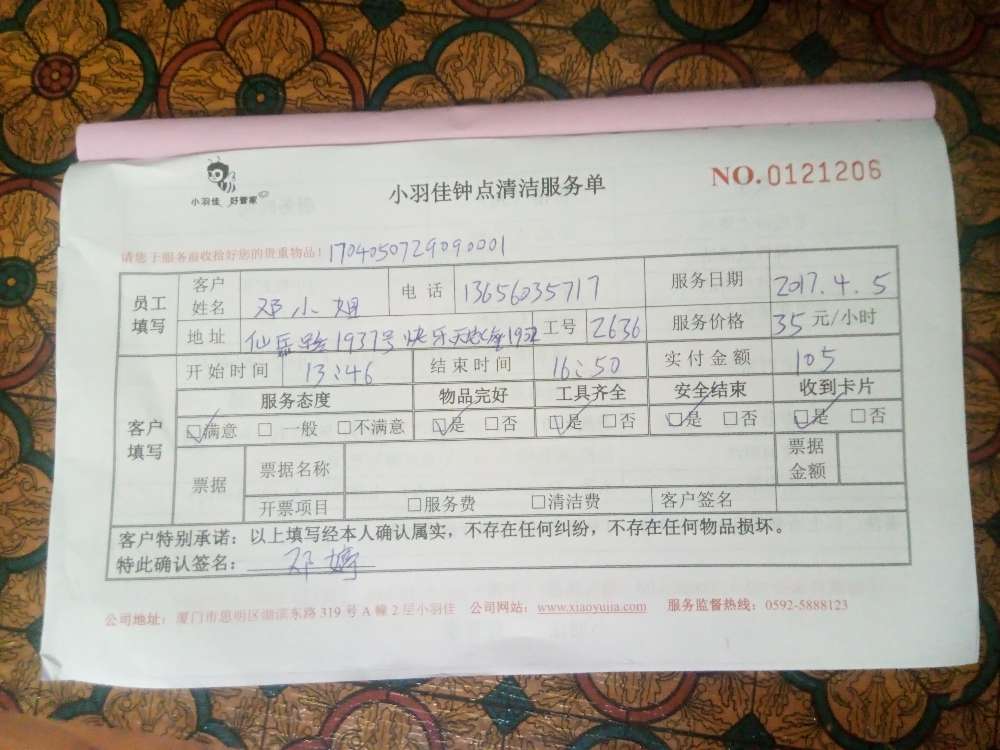 小羽佳 好管家
小羽佳钟点清洁服务单
NO.0121206
请您于服务前收拾好您的贵重物品！ 1704050729090001
员工填写 客户姓名 邓小姐 电话 13656035717 服务日期 2017.4.5
地址 仙岳路1937号快乐天地 工号 2636 服务价格 35元/小时
客户填写 开始时间 13:46 结束时间 16:50 实付金额 105
服务态度 物品完好 工具齐全 安全结束 收到卡片
☑满意 □一般 □不满意 ☑是 □否 ☑是 □否 ☑是 □否 ☑是 □否
票据 票据名称 票据金额
开票项目 □服务费 □清洁费 客户签名
客户特别承诺：以上填写经本人确认属实，不存在任何纠纷，不存在任何物品损坏。
特此确认签名：邓婷
公司地址：厦门市思明区湖滨东路319号A幢2层小羽佳 公司网站：www.xiaoyujia.com 服务监督热线：0592-5888123